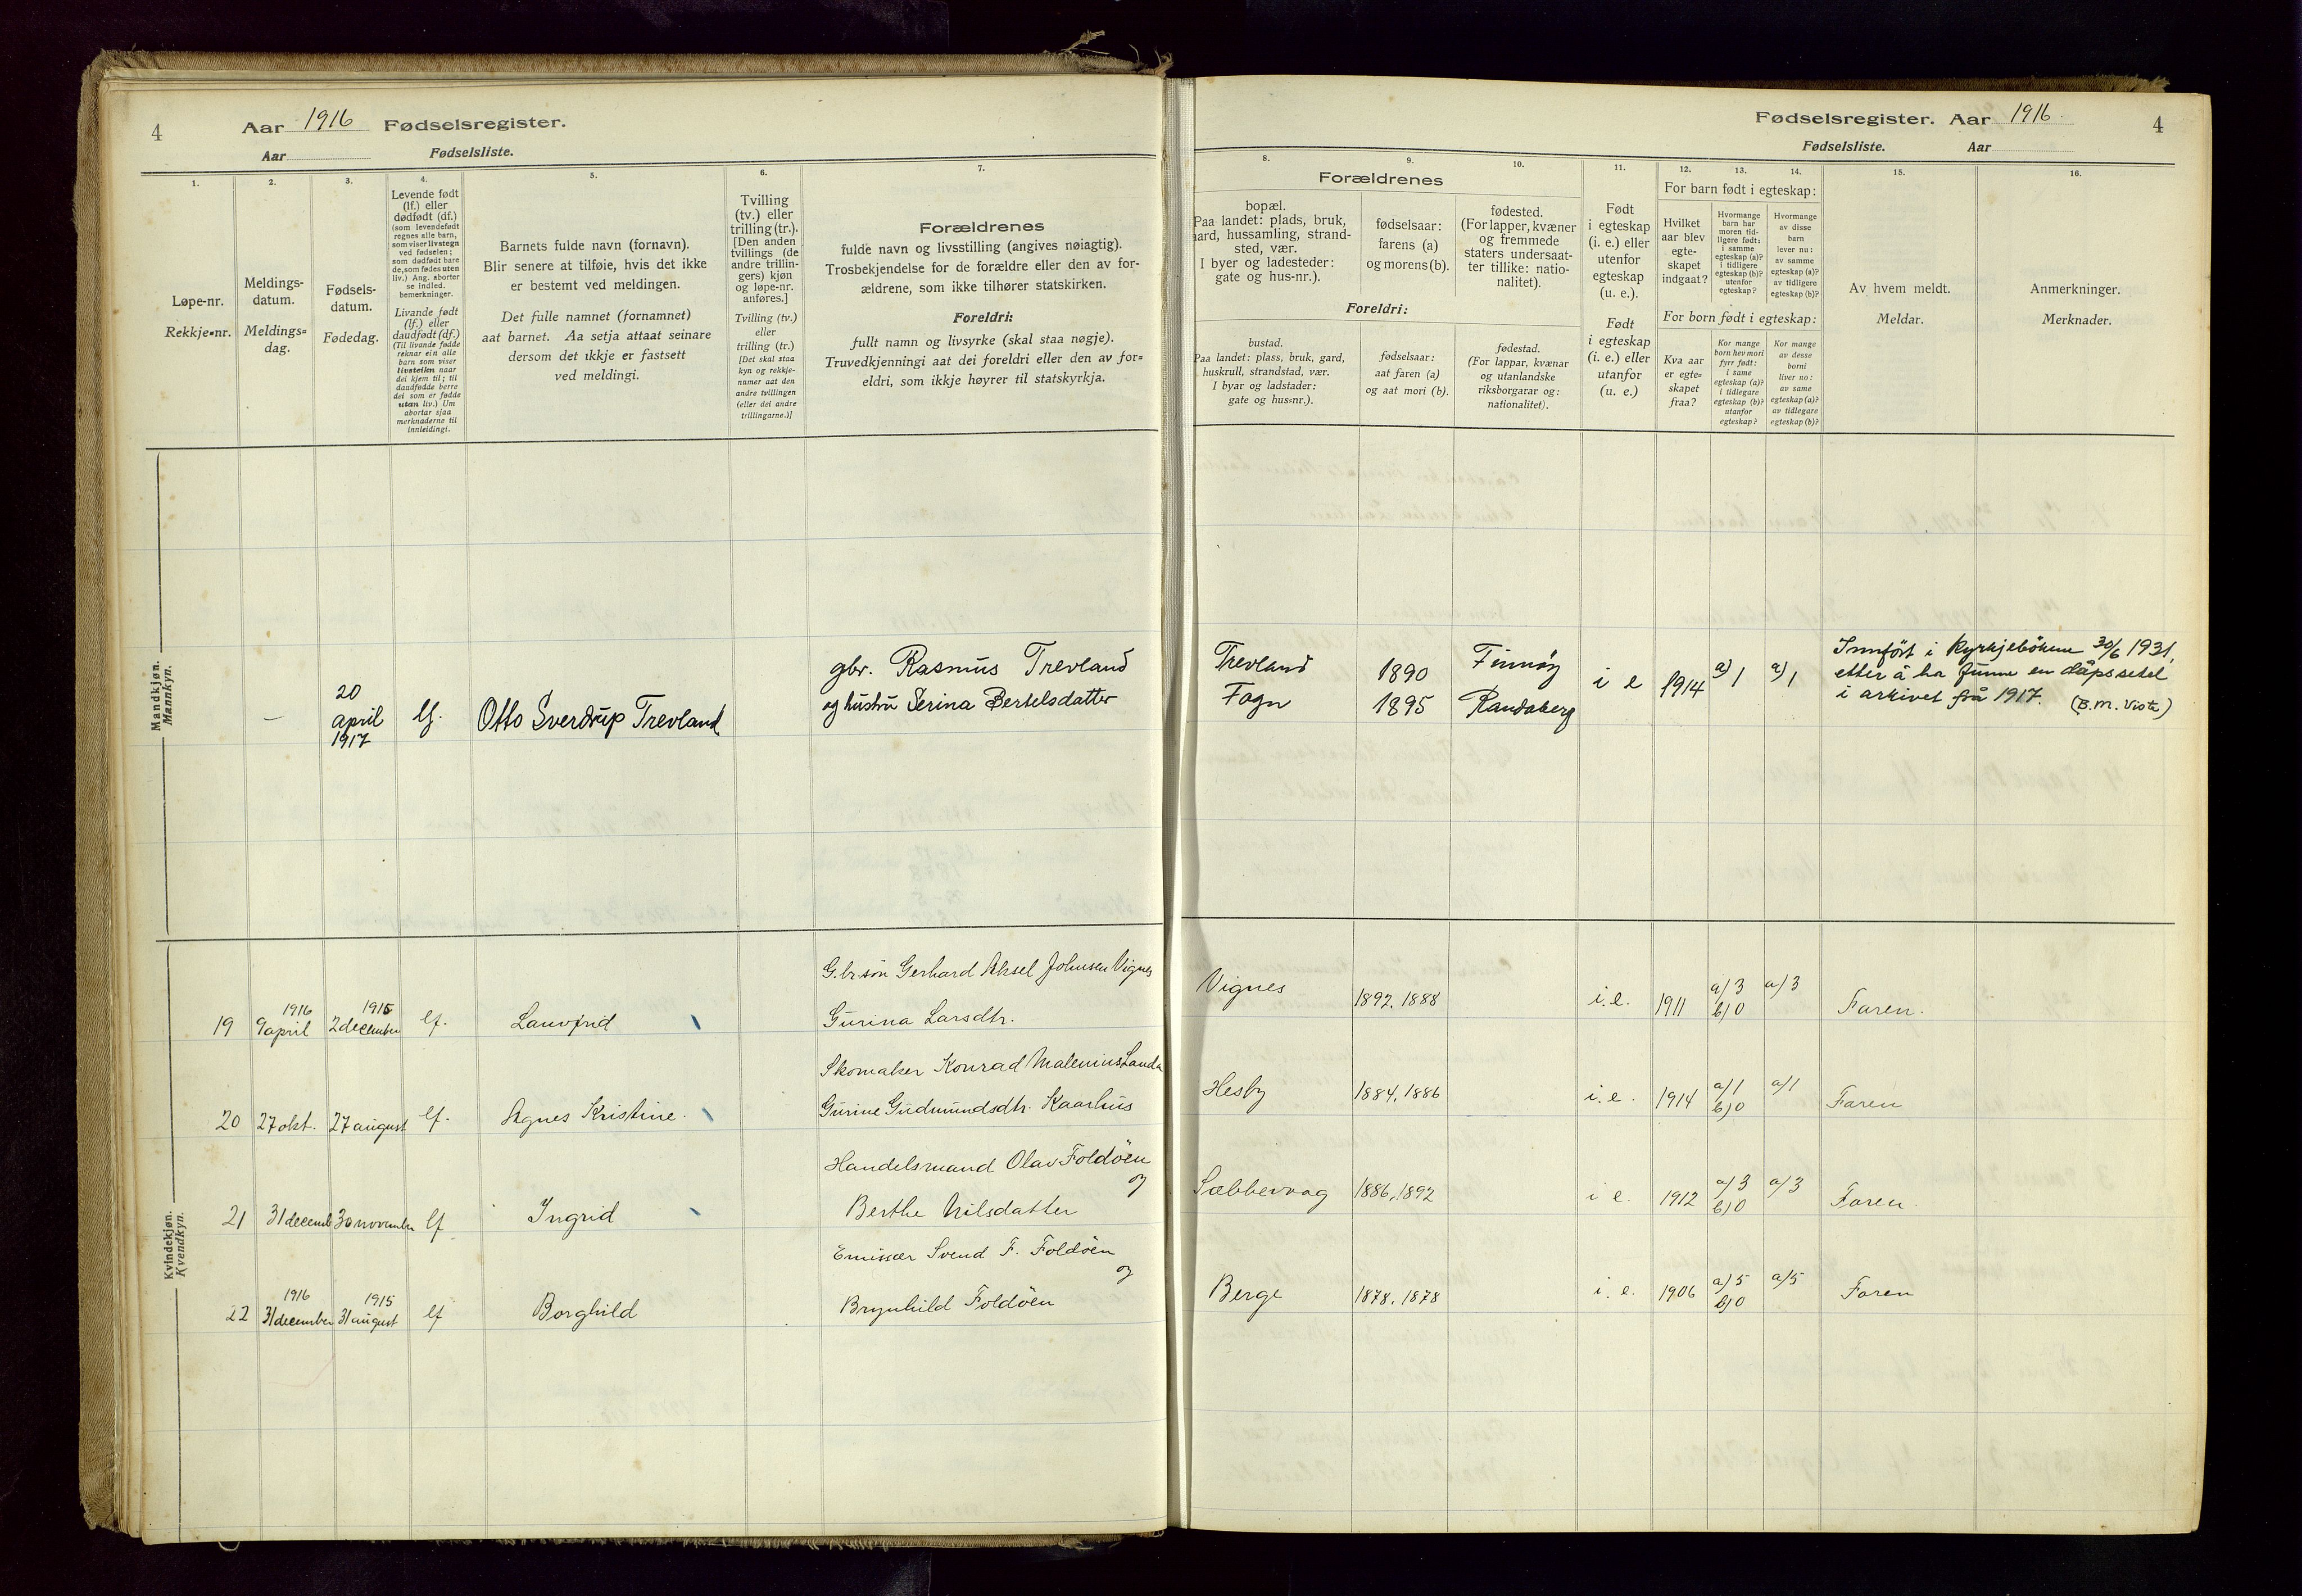 4
Aar 1916 Fødselsregister.
Aar Fødselsliste.
1.
Løpe-nr.
Rekkje-nr.
2.
Meldings-
datum.
Meldings-
dag.
3.
Fødsels-
datum.
Fødedag.
4.
Levende født
(lf.) eller
dødfødt (df.)
(som levendefødt
regnes alle barn,
som viser livstegn
ved fødselen;
som dødfødt bare
de, som fødes uten
liv.) Ang. aborter
se indled.
bemerkninger.
Livande født
(lf.) eller
daudfødt (df.)
(Til livande fødde
reknar ein alle
barn som viser
livsteikn naar
dei kjem til; til
daudfødde berre
dei som er fødde
utan liv.) Um
abortar sjaa
merknaderne til
innleidingi.
5.
Barnets fulde navn (fornavn).
Blir senere at tilføie, hvis det ikke
er bestemt ved meldingen.
Det fulle namnet (fornamnet)
aat barnet. Aa setja attaat seinare
dersom det ikkje er fastsett
ved meldingi.
6.
Tvilling
(tv.) eller
trilling (tr.).
[Den anden
tvillings (de
andre trillin-
gers) kjøn
og løpe-nr.
anføres.]
Tvilling (tv.)
eller
trilling (tr.)
[Det skal staa
kyn og rekkje-
numer aat den
andre tvillingen
(eller dei andre
trillingarne.)]
7.
Forældrenes
fulde navn og livsstilling (angives nøiagtig).
Trosbekjendelse for de forældre eller den av for-
ældrene, som ikke tilhører statskirken.
Foreldri:
fullt namn og livsyrke (skal staa nøgje).
Truvedkjenningi aat dei foreldri eller den av for-
eldri, som ikkje høyrer til statskyrkja.
Mandkjøn.
Mannkyn.
–
20
april
1917
lf.
Otto Sverdrup Trevland
gbr. Rasmus Trevland
og hustru Serina Bertelsdatter
Kvindekjøn.
Kvendkyn.
19
1916
9 april
1915
2 december
lf.
Lauvfrid
G.br.søn Gerhard Aksel Johnsen Vignes
Gurina Larsdtr.
20
27 okt.
27 august
lf.
Agnes Kristine.
Skomaker Konrad Malenius Landa
Gurine Gudmundsdtr. Kaarhus
21
31 decemb
30 november
lf
Ingrid
Handelsmand Olav Foldöen
og
Berthe Nilsdatter
22
1916
31 december
1915
31 august
lf
Borghild
Emissær Svend F. Foldöen
og
Brynhild Foldöen
Fødselsregister. Aar 1916.
4
Fødselsliste. Aar
8.
Forældrenes
bopæl.
Paa landet: plads, bruk,
aard, hussamling, strand-
sted, vær.
I byer og ladesteder:
gate og hus-nr.).
Foreldri:
bustad.
Paa landet: plass, bruk, gard,
huskrull, strandstad, vær.
I byar og ladstader:
gate og hus-nr.).
9.
fødselsaar:
farens (a)
og morens (b).
fødselsaar:
aat faren (a)
og aat mori (b).
10.
fødested.
(For lapper, kvæner
og fremmede
staters undersaat-
ter tillike: natio-
nalitet).
fødestad.
(For lappar, kvænar
og utanlandske
riksborgarar og:
nationalitet).
11.
Født
i egteskap
(i. e.) eller
utenfor
egteskap
(u. e.).
Født
i egteskap
(i. e.) eller
utanfor
(u. e.)
12. 13. 14.
For barn født i egteskap:
Hvilket
aar blev
egte-
skapet
indgaat?
Hvormange
barn har
moren tid-
ligere født:
i samme
egteskap (a)?
i tidligere
egteskap (b)?
utenfor
egteskap?
Hvormange
av disse
barn
lever nu:
av samme
egteskap (a)?
av tidligere
egteskap (b)?
For born født i egteskap:
Kva aar
er egte-
skapet
fraa?
Kor mange
born hev mori
fyrr født:
i same
egteskap (a)?
i tidlegare
egteskap (b)?
utanfor
egteskap?
Kor mange
av desse
borni
liver no:
av same
egteskap (a)?
av tidlegare
egteskap (b)?
15.
Av hvem meldt.
Meldar.
16.
Anmerkninger.
Merknader.
Trevland
Fogn
1890
1895
Finnöy
Randaberg
i e
1914
a) 1
a) 1
Innfört i kyrkjeboken 30/6 1931
etter å ha funne en dåpssetel
i arkivet frå 1917. (B.M. Viste)
Vignes
1892. 1888
i.e.
1911
a) 3
b) 0
a) 3
Faren.
Hesby
1884. 1886
i. e.
1914
a) 1
b) 0
a) 1
Faren
Sæbbevaag
1886, 1892
i e.
1912
a) 3
b) 0
a) 3
Faren.
Berge
1878. 1878
i. e.
1906
a) 5
b) 0
a) 5
Faren